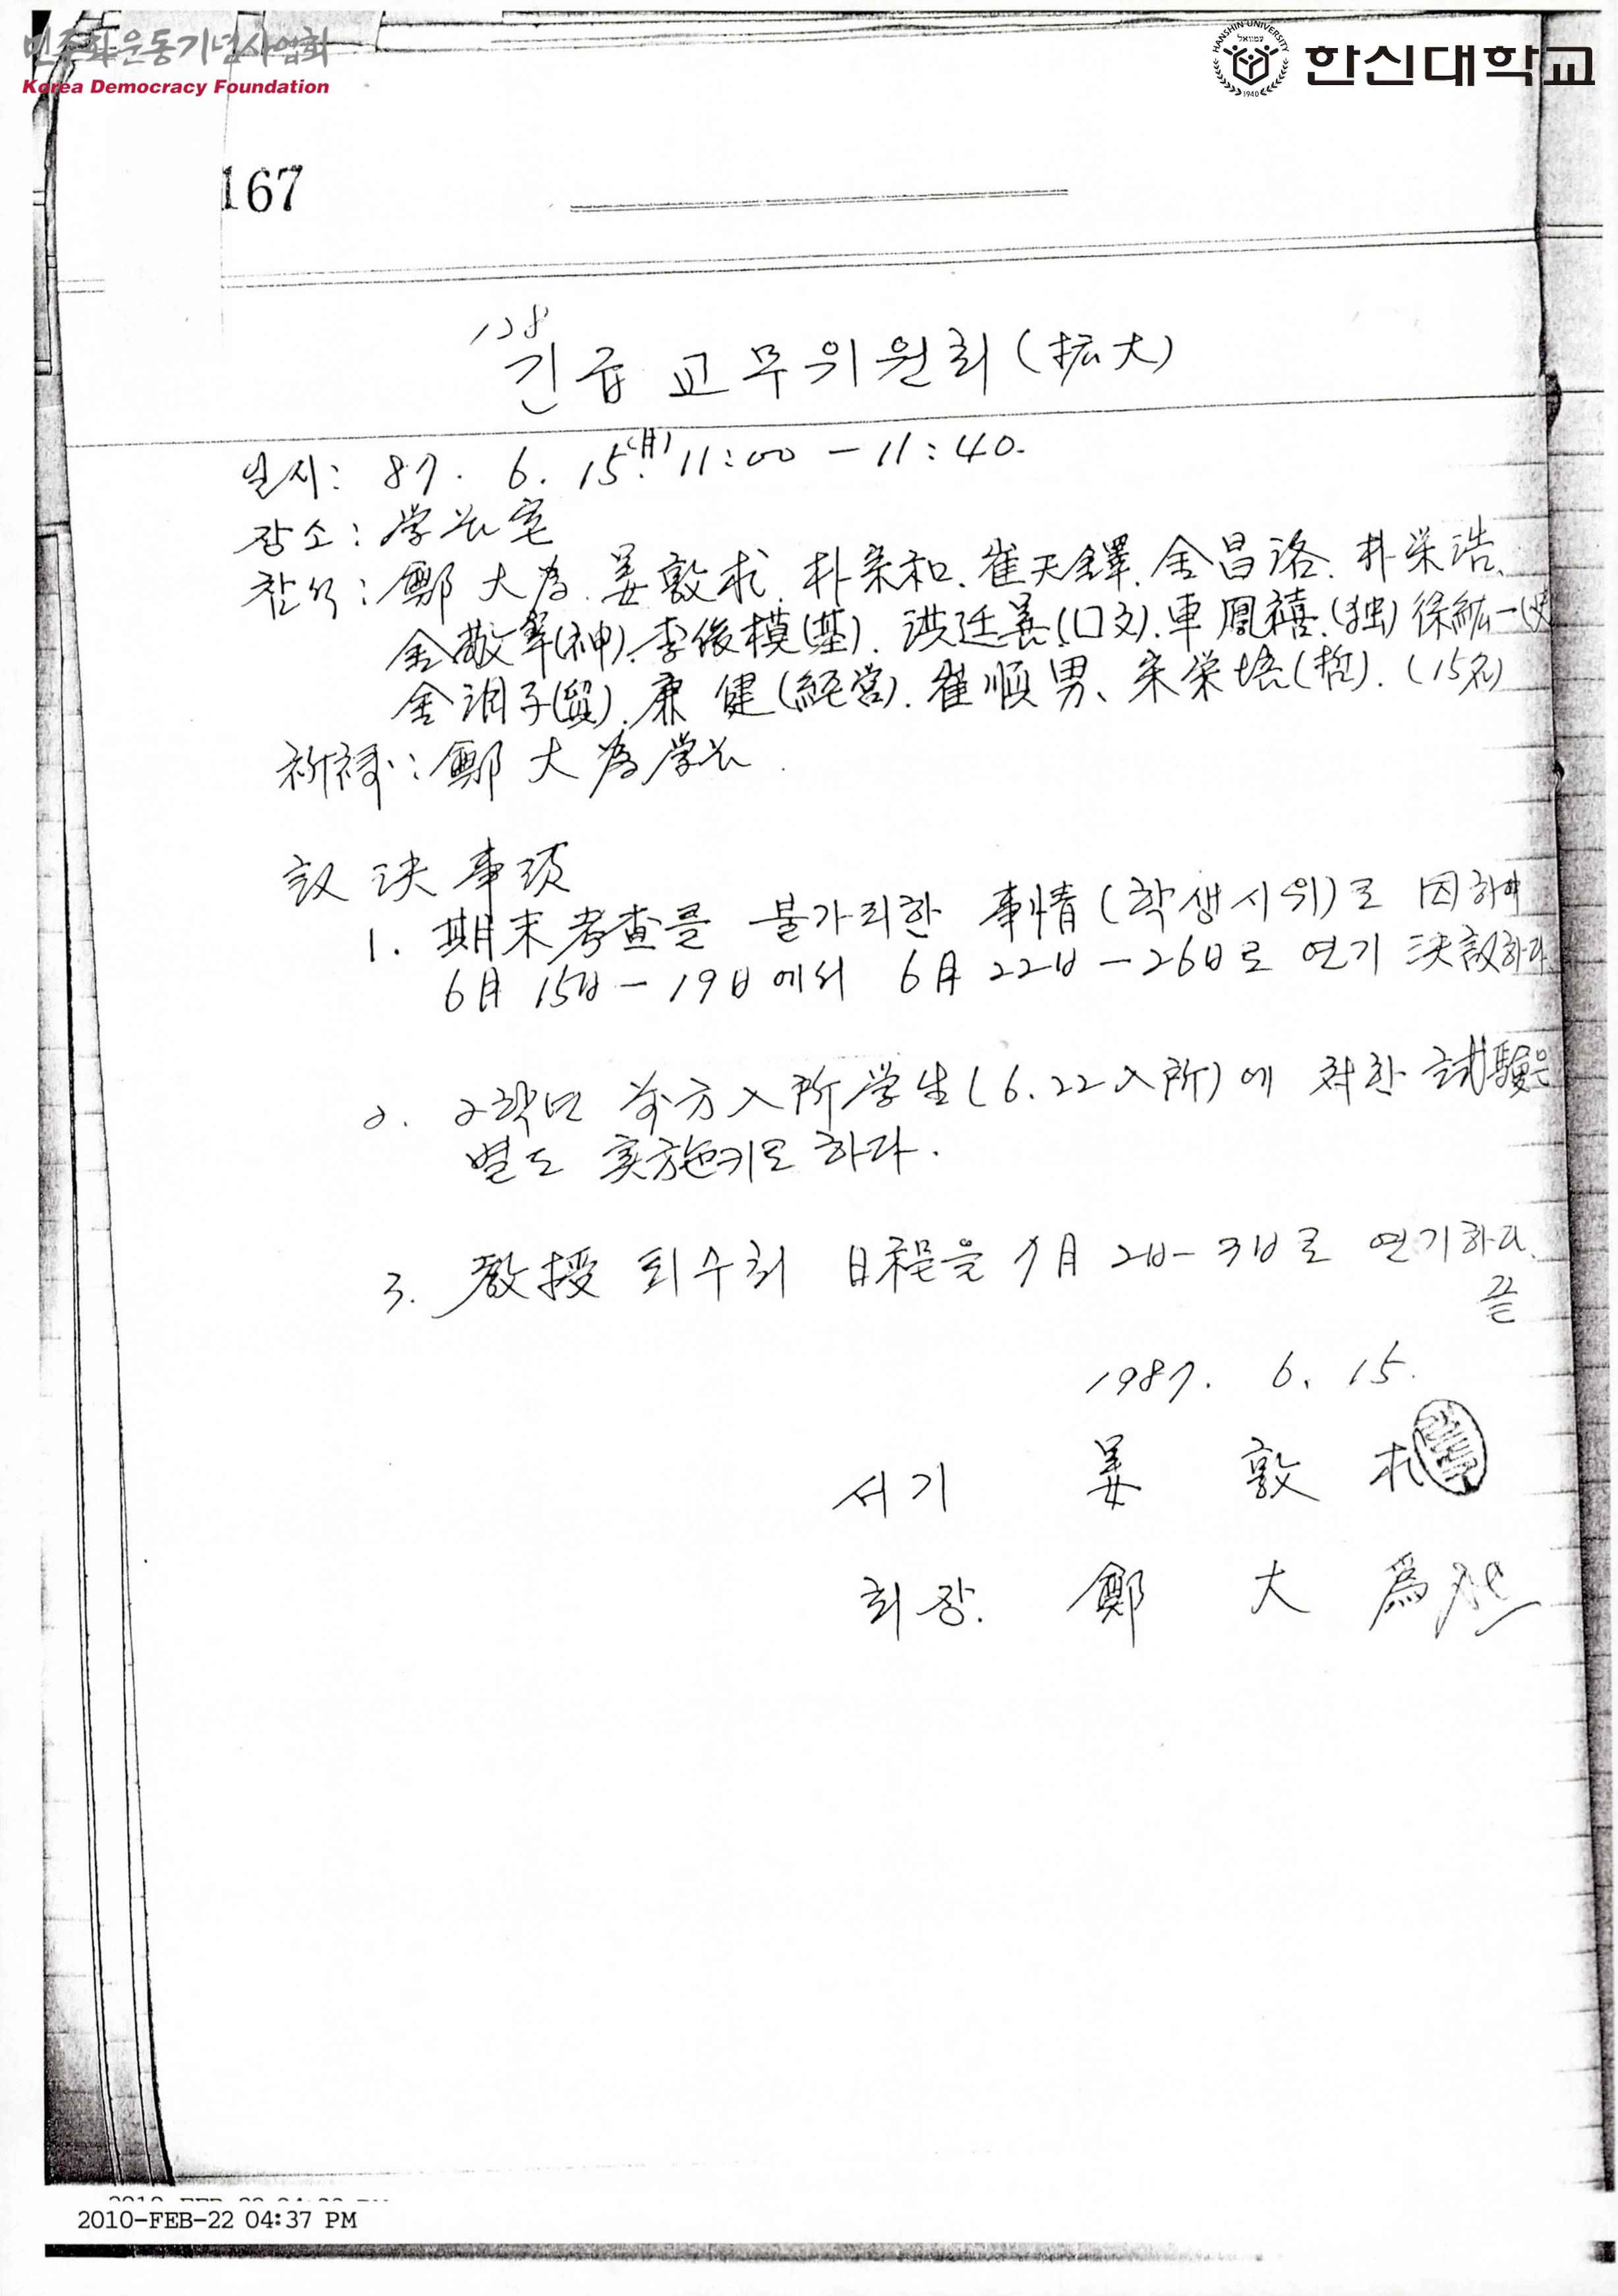 민주화운동기념사업회
Korea Democracy Foundation
HANSHIN UNIVERSITY
1940
한신대학교
167
128
긴급 교무위원회 (拡大)
일시: 87. 6. 15.(月) 11:00 - 11:40.
장소: 学长室
참석: 鄭 大為. 姜敦求. 朴宗和. 崔天鐸. 金昌洛. 朴栄浩.
金敬宰(神). 李俊模(基). 洪廷善(口文). 車鳳禧.(独) 徐紘一(史
金润子(貿). 康 健(経営). 崔順男. 宋栄培(哲). (15名)
祈祷: 鄭 大為 学长.
议决事项
1. 期末考査를 불가피한 事情(학생시위)로 因하여
6月 15日 - 19日에서 6月 22日 - 26日로 연기 决议하다
2. 2학년 前方入所学生(6.22入所)에 처한 試驗은
별도 実施키로 하다.
3. 教授 퇴수회 日程을 7月 2日 - 3日로 연기하다.
끝
1987. 6. 15.
서기 姜 敦 求
회장. 鄭 大 為
2010-FEB-22 04:37 PM